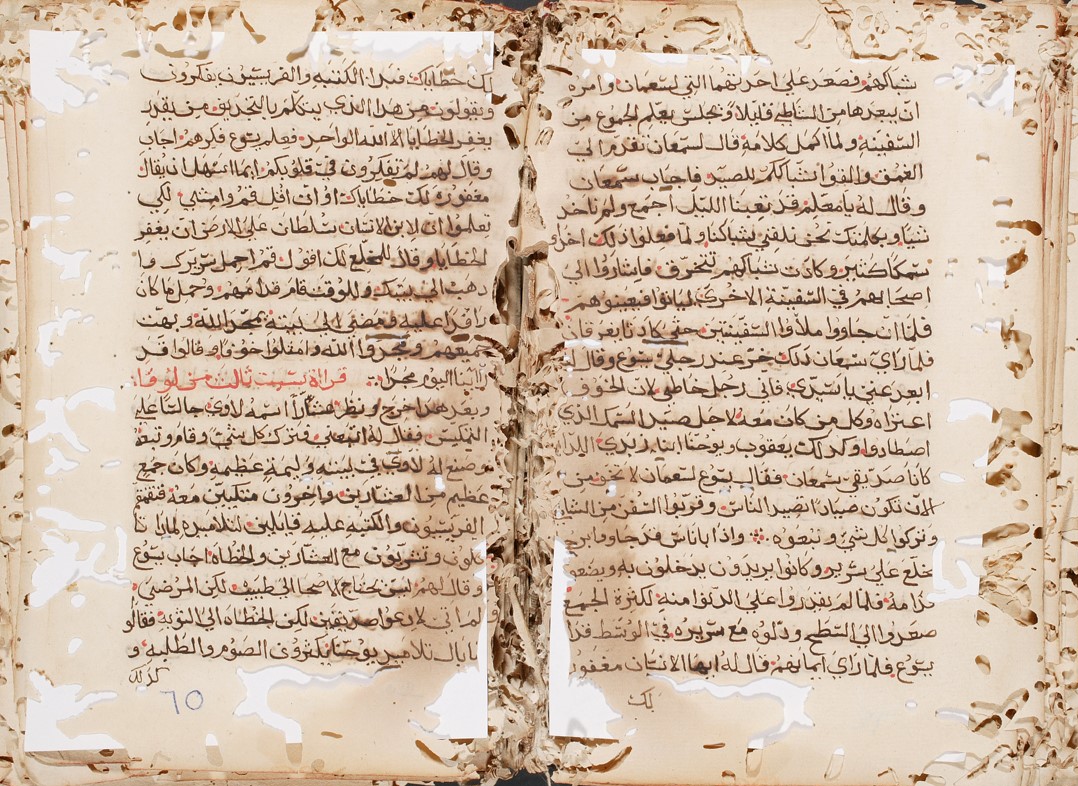 شباكهم فصعد على احدتهما التي لسمعان وامره
ان يبعدها من الشاطي قليلا وجلس يعلم الجموع من
السفينه ولما كمل كلامه قال لسمعان تقدم الي
العمق والقوا شباككم للصيد فاجاب سمعان
وقال له يا معلم قد تعبنا الليل اجمع ولم ناخذ
شيا وبكلمتك نحن نلقي شباكنا ولما فعلوا ذلك اخذوا
سمكا كثير وكادت شباكهم تتخرق فاشاروا الى
اصحابهم في السفينة الاخرى لياتوا فيعينوهم
فلما ان جاووا ملاوا السفينتين حتى كادتا يغرقان
فلما راي سمعان ذلك خر عند رجلي يسوع وقال له
ابعد عني يا سيدي فاني رجل خاطي لان الخوف
اعتراه وكل من كان معه لاجل صيد السمك الذي
اصطادوا وكذلك يعقوب ويوحنا ابنا زبدي اللذان
كانا صديقي سمعان فقال يسوع لسمعان لا تخف من
الان تكون صيادا تصيد الناس وقربوا السفن من الشاطي
وتركوا كل شي وتبعوه واذا اناس قد جاوا باخر
مخلع على سرير وكانوا يريدون يدخلون به ويضعوه
قدامه فلما لم يقدروا على الدنوا منه لكثرة الجمع
صعدوا الى السطح ودلوه مع سريره في الوسط قدام
يسوع فلما راي ايمانهم قال له ايها الانسان مغفوره
لك
لك خطاياك فبدا الكتبه والفريسيون يفكرون
ويقولون من هذا الذي يتكلم بالتجديف من يقدر
يغفر الخطايا الا الله الواحد فعلم يسوع فكرهم اجاب
وقال لهم لم تفكرون في قلوبكم ايما اسهل ان يقال
مغفوره لك خطاياك او ان اقل قم وامشي لكي
تعلموا ان لابن الانسان سلطان على الارض ان يغفر
الخطايا وقال للمخلع لك اقول قم احمل سريرك و
دهب الى بيتك وللوقت قام قدامهم وحمل ما كان
راقدا عليه ومضى الى بيته يمجد الله وبهت
جميعهم ومجدوا الله وامتلوا خوفا وقالوا قد
راينا اليوم مجدا قراة سبت ثالث من لوقا
وبعد هذا خرج ونظر عشارا اسمه لاوي جالسا على
المكس وقال له اتبعني وترك كل شي وقام وتبعه
وصنع له لاوي في بيته وليمة عظيمه وكان جمع
عظيم من العشارين واخرون متكين معه فتقمقم
الفريسيون والكتبه عليه قايلين لتلاميذه لماذا تا
كلون وتشربون مع العشارين والخطاه اجاب يسوع
وقال لهم ليس يحتاج الاصحا الى طبيب لكن المرضى
ولم اتي لادعوا صديقين لكن الخطاه الى التوبه فقالوا
ما بال تلاميد يوحنا يكثرون الصوم والطلبه و
كذلك
٦٥